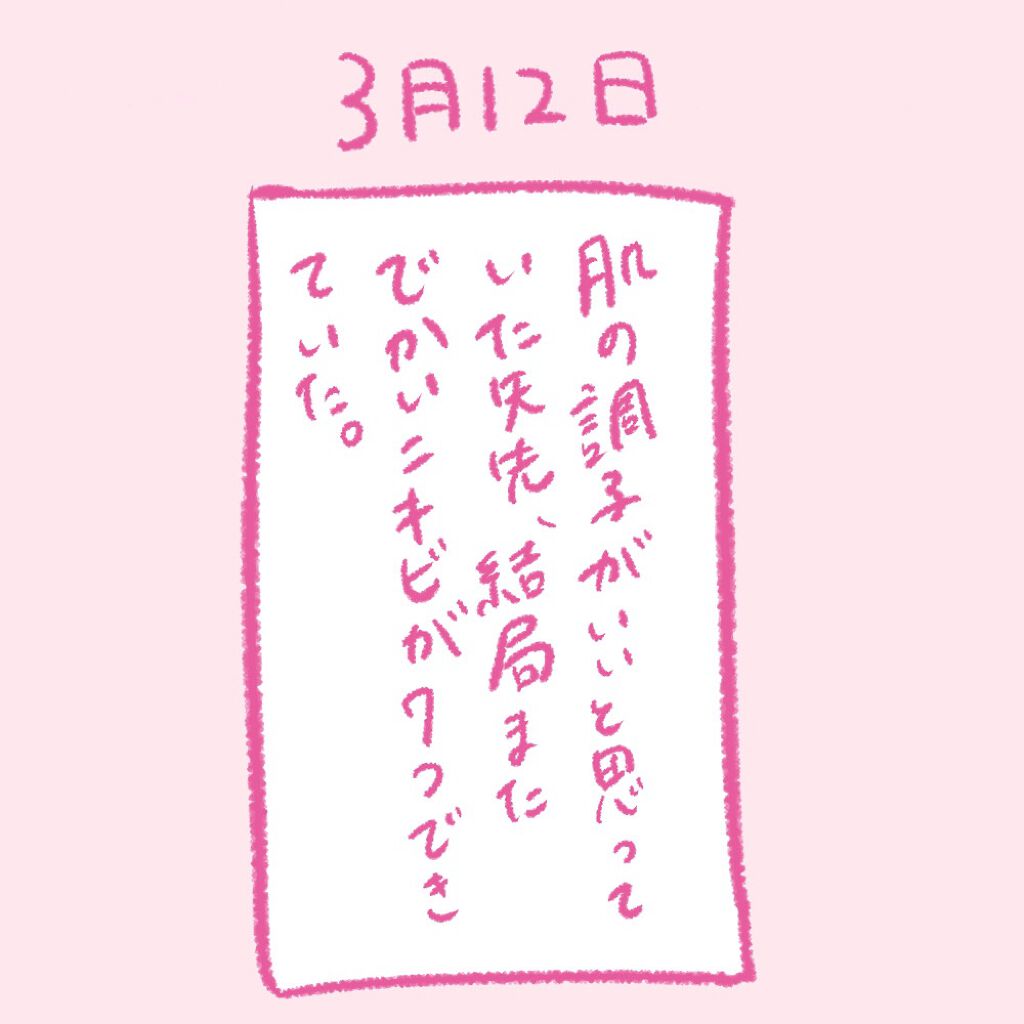 3月12日
肌の調子がいいと思って
いた矢先、結局また
でかいニキビが7つでき
ていた。